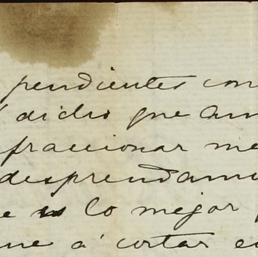 pendientes con
didio que am
fraccionar me
desprendam
e es lo mejor
ue á cortar e